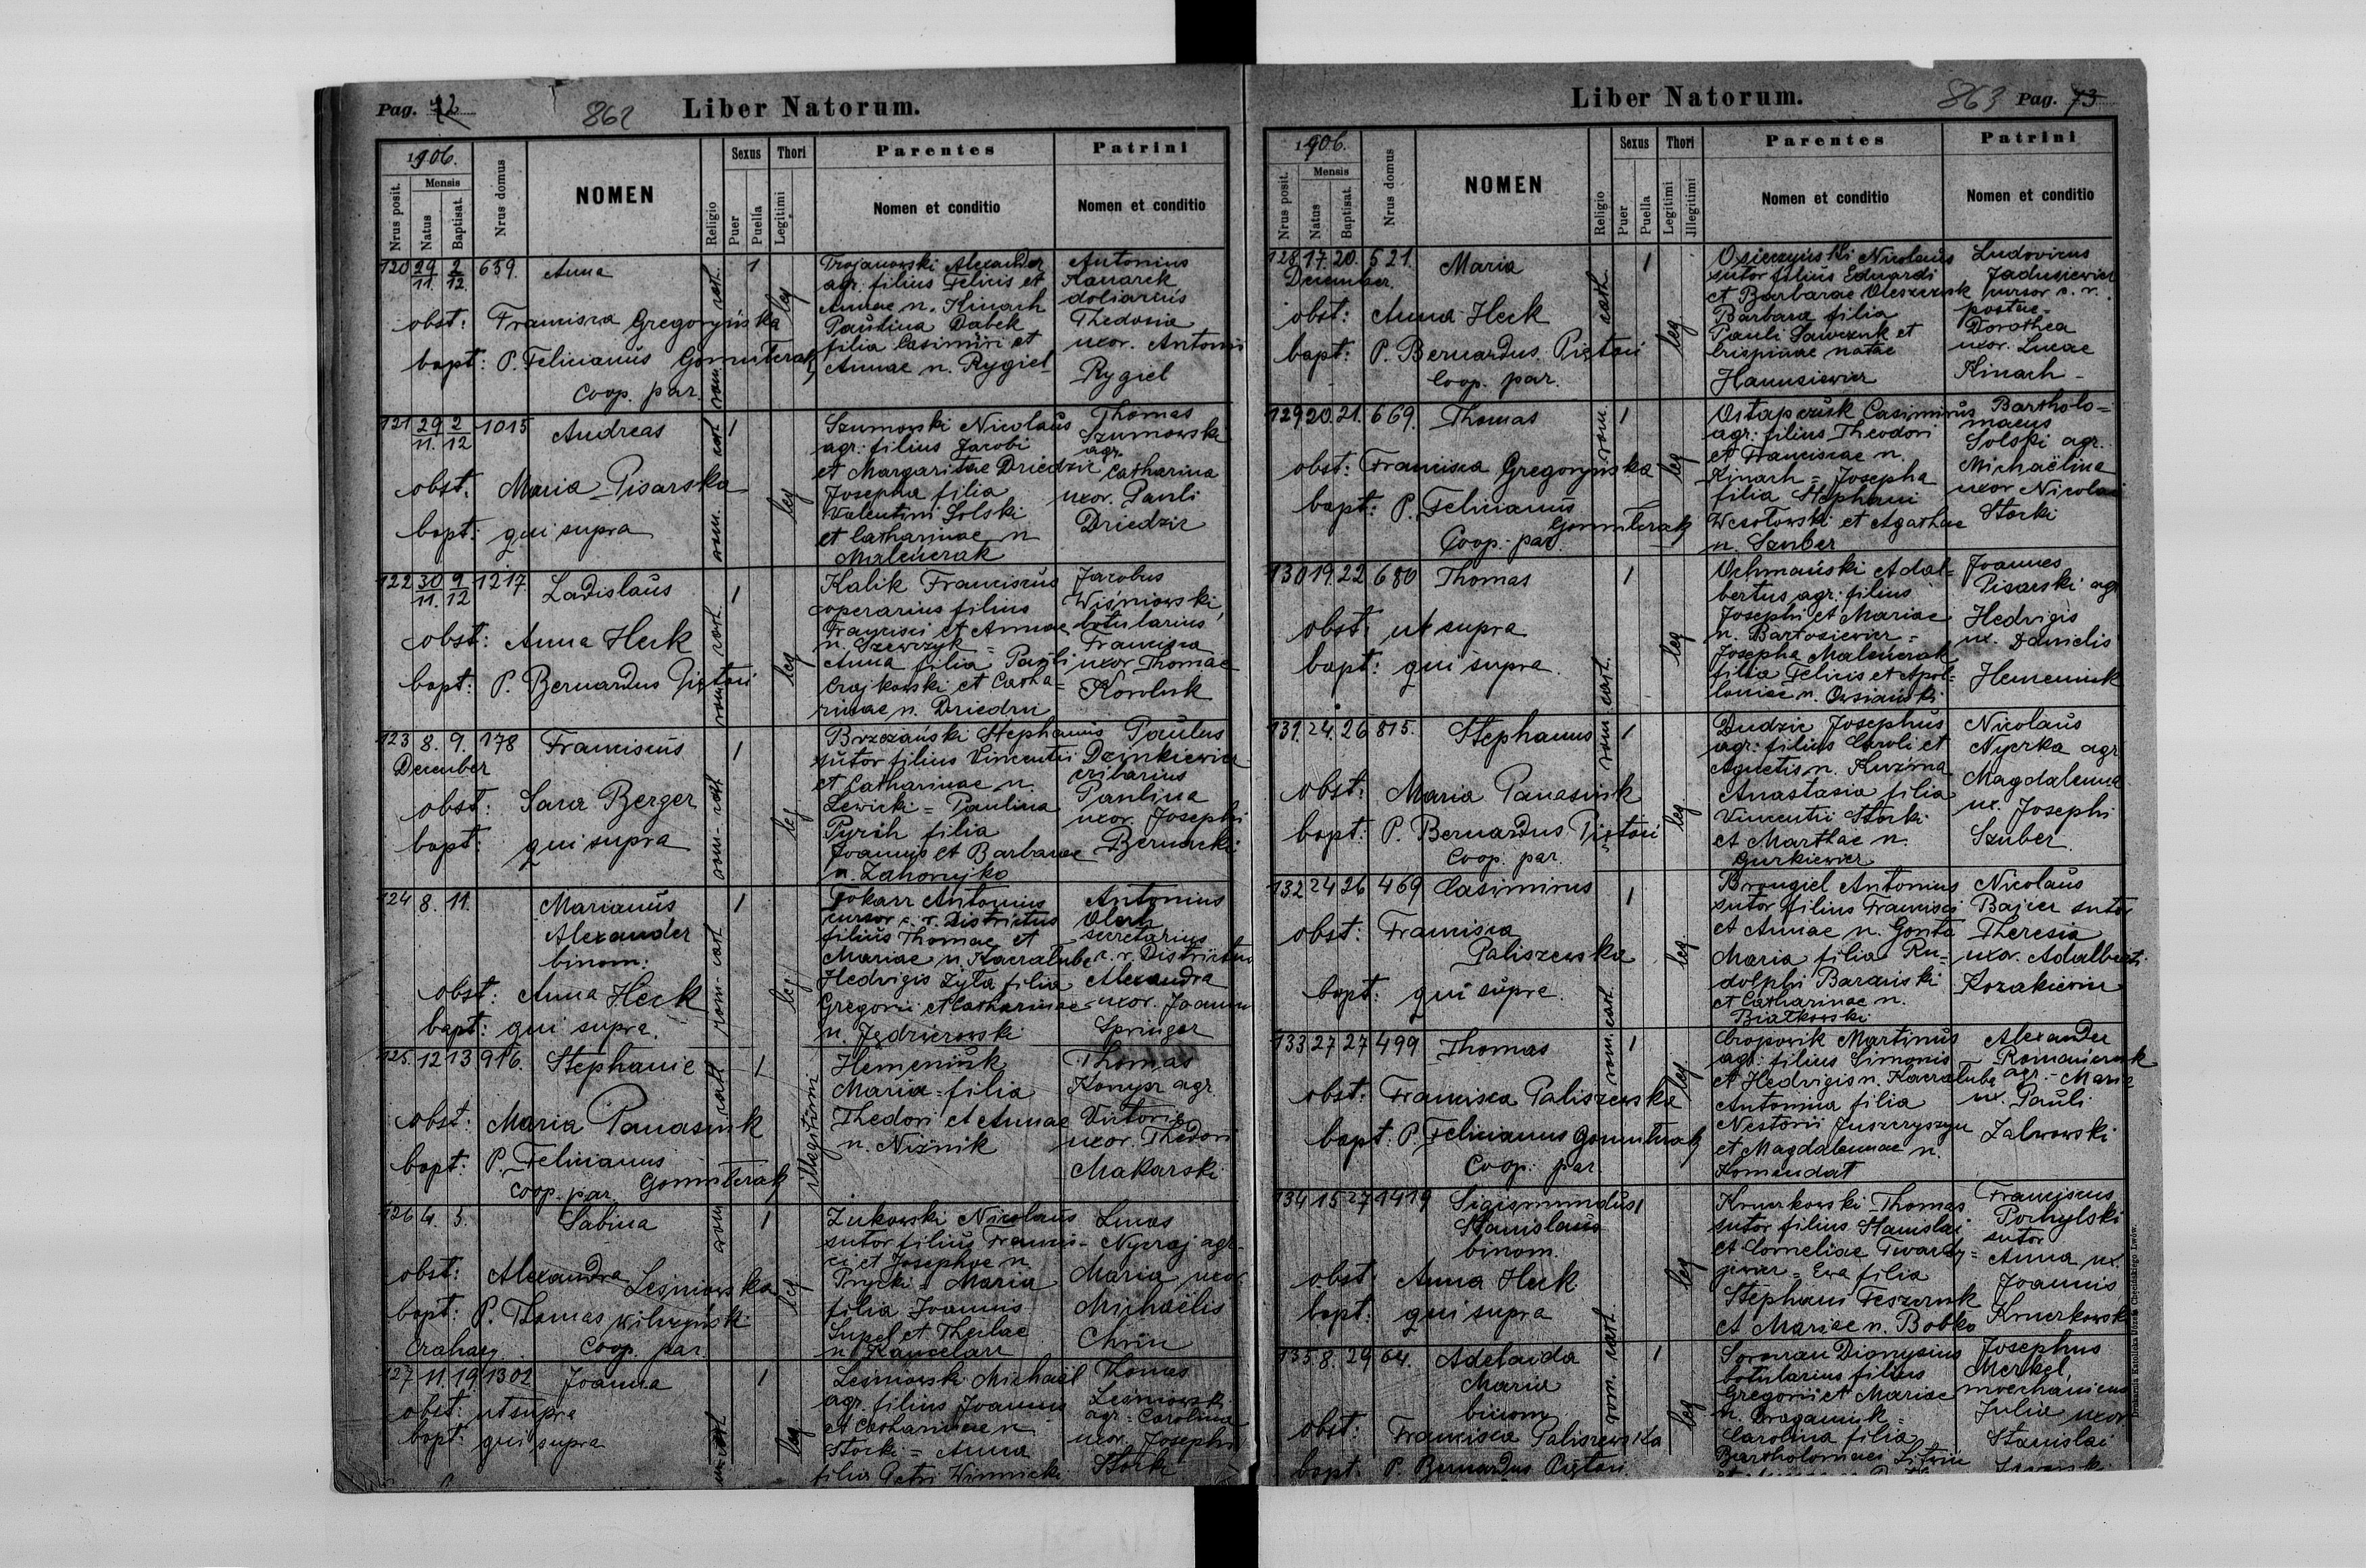 Pag. 72
862
Liber Natorum.
1906.
Nrus posit.
Mensis
Natus
Baptisat.
Nrus domus
NOMEN
Religio
Sexus
Puer
Puella
Thori
Legitimi
Parentes
Nomen et conditio
Patrini
Nomen et conditio
120 29/11. 2/12. 659. Anna
obst: Francisca Gregoryńska
bapt: P. Felicianus
Coop. par.
rom. cath.
1
leg
Trojanowski Alexander
agr. filius Felicis et
Annae n. Kinach
Paulina Dąbek
filia Casimiri et
Annae n. Rygiel
Antonius
Kanarek
doliarius
Thedosia
uxor. Antonii
Rygiel
121 29/11. 2/12 1015 Andreas
obst. Maria Pisarska
bapt: qui supra
rom. cath
1
leg
Szumowski Nicolaus
agr. filius Jacobi
et Margaritae Driedzic
Josepha filia
Valentini Solski
et Catharinae n
Malenerak
Thomas
Szumowski
agr.
Catharina
uxor. Pauli
Driedzic
122 30/11. 9/12 1217. Ladislaus
obst: Anna Heck
bapt: P. Bernardus
rom. cath.
1
leg
Kalik Franciscus
operarius filius
Francisci et Annae
n. Szewczyk =
Anna filia Pauli
Czajkowski et Catha=
rinae n. Driedzii
Jacobus
Wiśniowski,
botularius
Francisca
uxor Thomae
Koroluk
123 8. 9. 178 Franciscus
December
obst: Sara Berger
bapt: qui supra
rom. cath
1
leg
Brzezański Stephanus
sutor filius Vincentii
et Catharinae n.
Lewicki = Paulina
Pyrih filia
Joannis et Barbarae
n. Zahorujko
Paulus
cribarius
Paulina
uxor. Josephi
Bernacki
124 8. 11. Marianus
Alexander
binom:
obst: Anna Heck
bapt: qui supra.
rom. cath
1
leg
Tokarz Antonius
cursor c. r. Districtus
filius Thomae et
Mariae n. Kaczałuba
Hedvigis Zyła filia
Gregorii et Catharinae
n. Jędrzerowski
Antonius
secretarius
c. r. Districtus
Alexandra
uxor. Joannis
Springer
125. 12 13 916. Stephanie
obst: Maria Panasiuk
bapt: P. Felicianus
coop. par.
1
illegitimi
Hemeniuk
Maria = filia
Thedori et Annae
n. Niznik
Thomas
Konysz agr
Victoria
uxor. Thedori
Makarski
126 4. 5. Sabina
obst: Alexandra Leśniowska
bapt: P. Thomas
coop. par.
rom
1
leg
Zukowski Nicolaus
sutor filius Francis=
ci et Josephae n.
Prycki = Maria
filia Joannis
Lupel et Theclae
n. Kancelarz
Lucas
Nyczaj agr.
Maria uxor
Michaëlis
Chriń
127 11. 19 1302 Joanna
obst: ut supra
bapt: qui supra
1
leg
Leśniowski Michaël
agr. filius Joannis
et Catharinae n
Storki = Anna
filia Petri Winnicki
Thomas
Leśniowski
agr = Carolina
uxor. Josephi
Stork
863
Pag. 73
Liber Natorum.
1906.
Nrus posit.
Mensis
Natus
Baptisat.
Nrus domus
NOMEN
Religio
Sexus
Puer
Puella
Thori
Legitimi
Illegitimi
Parentes
Nomen et conditio
Patrini
Nomen et conditio
128 17. 20. 521. Maria
December.
obst: Anna Heck
bapt: P. Bernardus
Coop. par.
cath.
1
leg
Osieczyński Nicolaus
sutor filius Eduardi
et Barbarae Oleszczuk
Barbara filia
Pauli Sawczuk et
Crispinae natae
Hanusiewicz
Ludovicus
Jadusiewicz
cursor c. r.
postae =
Dorothea
uxor. Lucae
Kinach
129 20. 21. 669. Thomas
obst: Francisca Gregoryńska
bapt: P. Felicianus
Coop. par.
rom.
1
leg
Ostapczuk Casimirus
agr: filius Theodori
et Franciscae n.
Kinach = Josepha
filia Stephani
Wesołowski et Agathae
n. Szuber
Bartholo=
maeus
Solski agr.
Michaëlina
uxor Nicolai
Storki
130 19. 22 680 Thomas
obst: ut supra
bapt: qui supra
rom. cath.
1
leg
Ochmański Adal=
bertus agr: filius
Josephi et Mariae
n. Bartosiewicz =
Josepha Malenerak
filia Felicis et Apol=
loniae n. Owsiański
Joannes
Pisarski agr
Hedvigis
ux. Danielis
Hemeniuk
131. 24. 26 815. Stephanus
obst: Maria Panasiuk
bapt: P. Bernardus
Coop. par.
1
leg
Dudzic Josephus
agr: filius Caroli et
Agnetis n. Kuźma
Anastasia filia
Vincentii Storki
et Marthae n.
Gurkiewicz
Nicolaus
Nyczka agr
Magdalenna
ux. Josephi
Szuber.
132 24 26 469 Casimirus
obst: Francisca
Paliszewska
bapt: qui supra.
1
leg.
Brongiel Antonius
sutor filius Francisci
et Annae n. Gonta
Maria filia Ru=
dolphi Barański
et Catharinae n.
Białkowski
Nicolaus
Bajcer sutor
Theresia
uxor. Adalberti
Kozakiewicz
133 27 27 499 Thomas
obst: Francisca Paliszewska
bapt: P. Felicianus
Coop. par
rom. cath.
1
leg.
Cropowik Martinus
agr: filius Simonis
et Hedvigis n. Kaczałuba
Antonina filia
Nestorii Juszczyszyn
et Magdalennae n.
Komendat
Alexander
Romanieruk
agr. = Maria
ux. Pauli
Zalwowski
134 15 27 1419 Sigismundus
Stanislaus
binom.
obst: Anna Heck
bapt: qui supra
1
leg
Kruerkowski Thomas
sutor filius Stanislai
et Corneliae Twardy=
jewicz = Ewa filia
Stephani Feszczuk
et Mariae n. Bobko
Franciscus
Pochylski
sutor
Anna ux.
Joannis
Kruerkowski
135 8. 29 64. Adelaida
Maria
binom
obst: Francisca Paliszewska
bapt: P. Bernardus
rom. cath
1
leg
Dionysius
botularius filius
Gregorii et Mariae
n. Draganiuk =
Carolina filia
Bartholomaei Litwin
Josephus
Merkel,
mechanicus
Julia uxor
Stanislai
Drukarnia Katolicka Józefa Chęcińskiego Lwów.